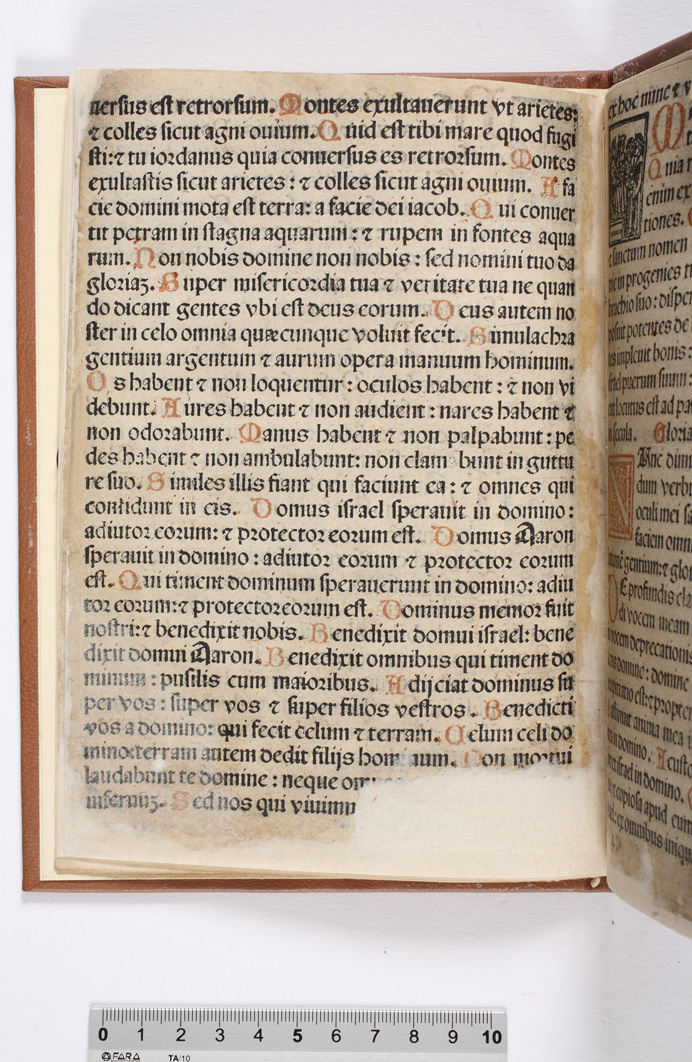 uersus est retrorsum. Montes exultauerunt vt arietes:
⁊ colles sicut agni ouium. Quid est tibi mare quod fugi
sti:⁊ tu iordanus quia conuersus es retrorsum. Montes
exultastis sicut arietes : ⁊ colles sicut agni ouium. A fa
cie domini mota est terra: a facie dei iacob. Qui conuer
tit petram in stagna aquarum: ⁊ rupem in fontes aqua
rum. Non nobis domine non nobis : sed nomini tuo da
gloriaz. Super misericordia tua ⁊ veritate tua ne quan
do dicant gentes vbi est deus eorum. Deus autem no
ster in celo omnia quæcunque voluit fecit. Simulachra
gentium argentum ⁊ aurum opera manuum hominum.
Os habent ⁊ non loquentur : oculos habent : ⁊ non vi
debunt. Aures habent ⁊ non audient : nares habent ⁊
non odorabunt. Manus habent ⁊ non palpabunt : pe
des habent ⁊ non ambulabunt: non clam bunt in guttu
re suo. Similes illis fiant qui faciunt ea : ⁊ omnes qui
confidunt in eis. Domus israel sperauit in domino:
adiutor eorum: ⁊ protector eorum est. Domus Aaron
sperauit in domino : adiutor eorum ⁊ protector eorum
est. Qui timent dominum sperauerunt in domino: adiu
tor eorum:⁊ protector eorum est. Dominus memor fuit
nostri:⁊ benedixit nobis. Benedixit domui israel: bene
dixit domui Aaron. Benedixit omnibus qui timent do
minum : pusilis cum maioribus. Adijciat dominus su
per vos : super vos ⁊ super filios vestros. Benedicti
vos a domino: qui fecit celum ⁊ terram. Celum celi do
mino:terram autem dedit filijs hom um. Non mortui
laudabunt te domine : neque om
infernuz. Sed nos qui viuim
ex hoc nunc ⁊
Quia
enim ex
tiones.
sanctum nomen
in progenies
brachio suo : disper
posuit potentes de
impleuit bonis :
puerum suum :
locutus est ad pa
secula. Gloria
Nunc dimi
dum verbu
oculi mei
faciem omn
gentium:⁊ glo
De profundis cla
di vocem meam
vocem deprecationis
domine : domine
est:⁊ propter
anima mea i
domino. A custo
israel in domino.
copiosa apud eum
ex omnibus iniqu
0 1 2 3 4 5 6 7 8 9 10
FARA TA/10